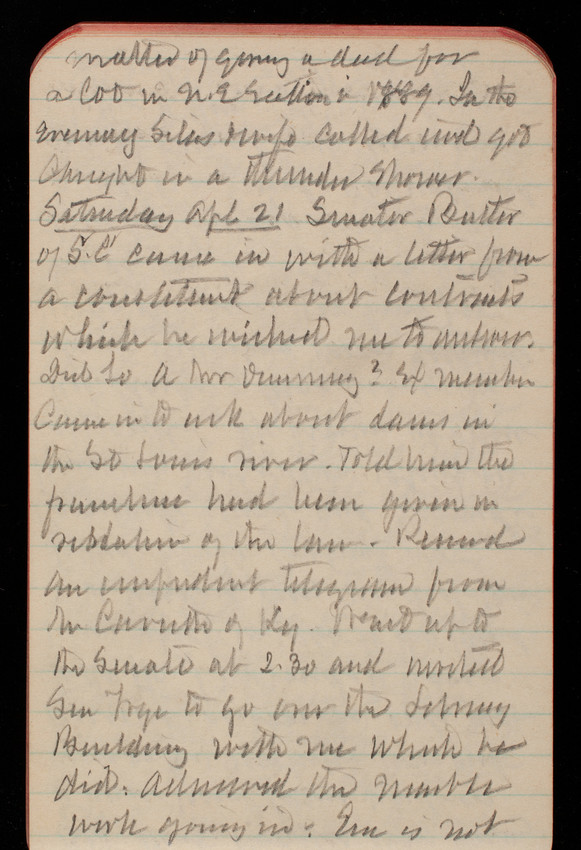 matter of giving a deed for
a lot in N.E Section in 1889. In the
Evening Silas & wife called and got
Caught in a thunder Shower.
Saturday Apl 21 Senator Butler
of S.C came in with a letter from
a constituent about contracts
which he wished me to answer.
Did so A Mr ? Ex member
Came in to ask about dams in
the St Louis river. Told him the
franchise had been given in
violation of the law. Received
an impudent telegram from
Mr of Ky. Went up to
the Senate at 2.30 and invited
Sen Frye to go over the Library
Building with me which he
did. Admired the marble
work going in. Eva is not